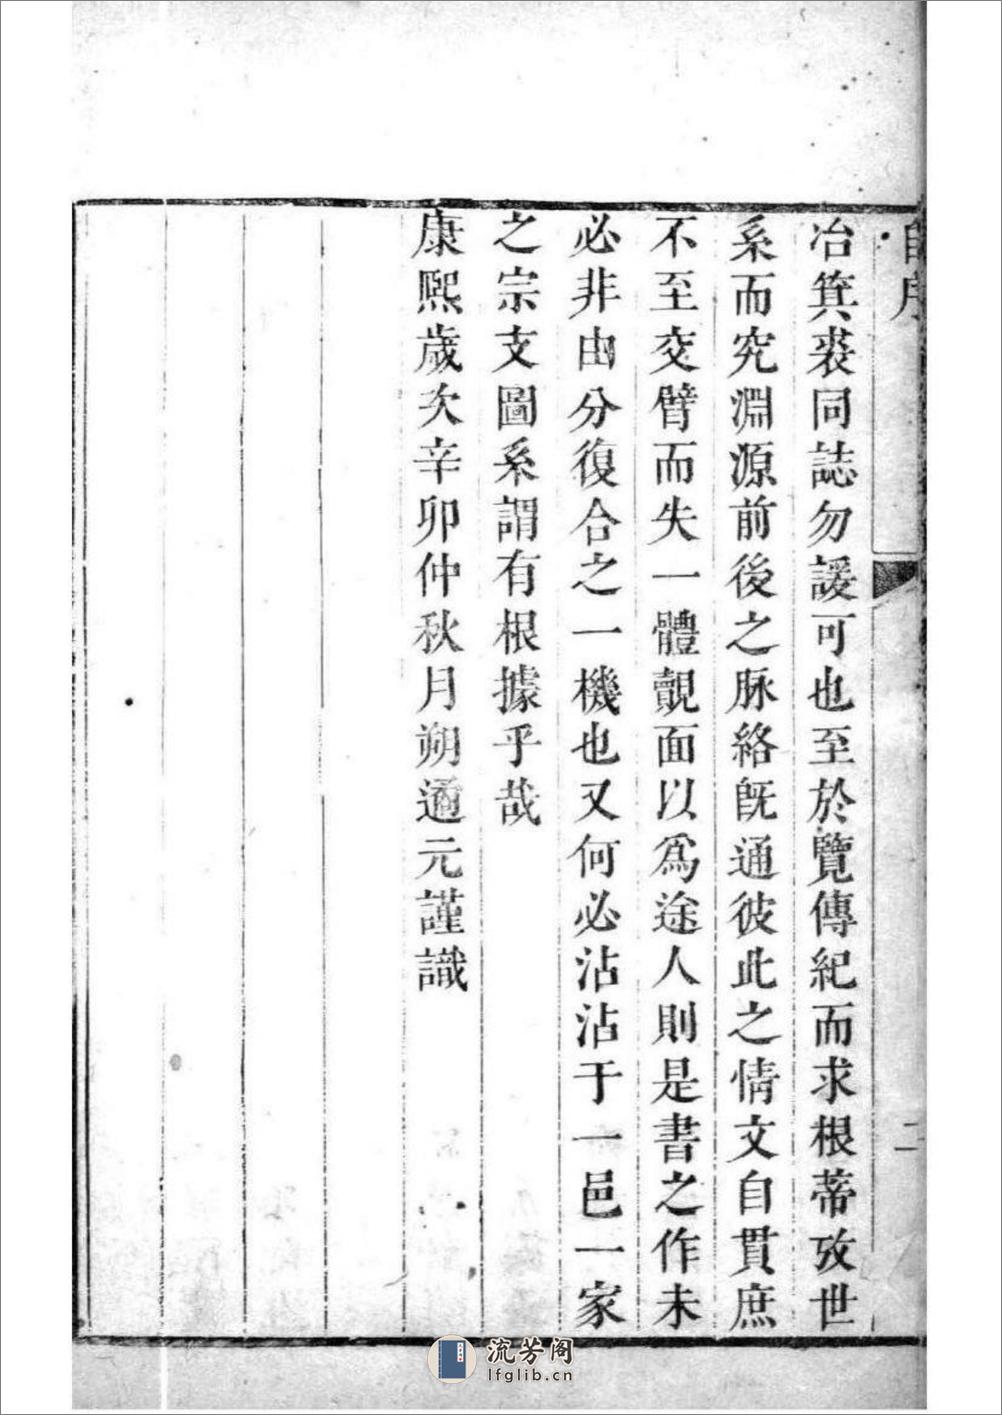 自序
二
冶箕裘同誌勿諼可也至於覽傳紀而求根蒂攷世
系而究淵源前後之脉絡旣通彼此之情文自貫庶
不至交臂而失一體覿面以爲途人則是書之作未
必非由分復合之一機也又何必沾沾于一邑一家
之宗支圖系謂有根據乎哉
康熙歲次辛卯仲秋月朔適元謹識
流芳阁
lfglib.cn